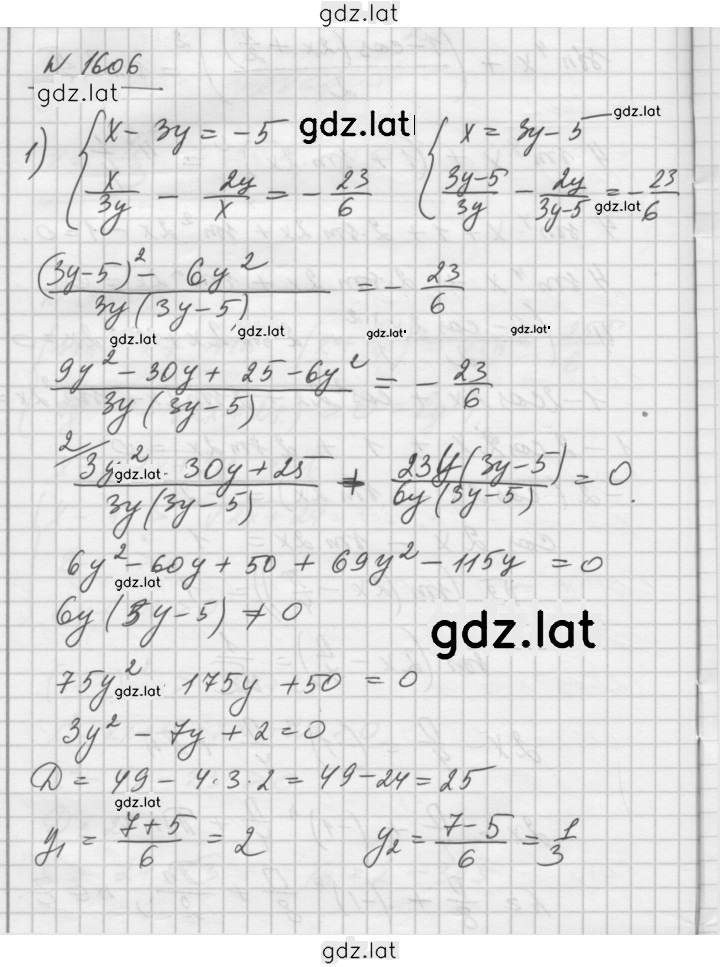 gdz.lat
N 1606
gdz.lat
1) { x - 3y = -5 gdz.lat { x = 3y - 5 gdz.lat
x/3y - 2y/x = - 23/6 (3y-5)/3y - 2y/(3y-5) = - 23/6 gdz.lat
((3y-5)² - 6y²)/(3y(3y-5)) = - 23/6
gdz.lat gdz.lat gdz.lat gdz.lat
(9y² - 30y + 25 - 6y²)/(3y(3y-5)) = - 23/6
2/ (3y² - 30y + 25)/(3y(3y-5)) + (23y(3y-5))/(6y(3y-5)) = 0.
gdz.lat
6y² - 60y + 50 + 69y² - 115y = 0
gdz.lat
6y(3y-5) ≠ 0
gdz.lat
75y² - 175y + 50 = 0
gdz.lat
3y² - 7y + 2 = 0
D = 49 - 4·3·2 = 49 - 24 = 25
gdz.lat
y₁ = (7+5)/6 = 2 y₂ = (7-5)/6 = 1/3
gdz.lat